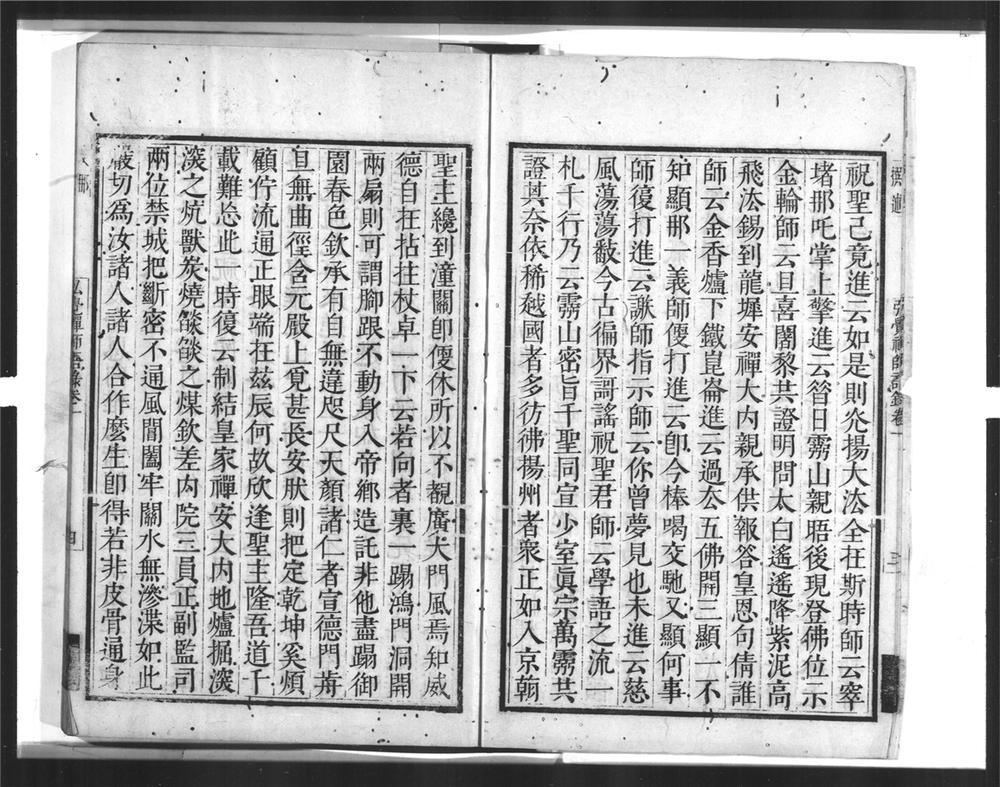 祝聖已竟進云如是則灮揚大法全在斯時師云宰
堵那吒掌上擎進云昝日霛山親𦖟後現登佛位示
金輪師云且喜闍黎共證明問太白遙遙降紫泥高
飛法錫到龍墀安禪大內親承供報答皇恩句倩誰
師云金香爐下鐵崑崙進云過去五佛開三顯一不
知顯那一義師便打進云卽今棒喝交馳又顯何事
師復打進云謝師指示師云你曾夢見也未進云慈
風蕩蕩敷今古徧界謌謠祝聖君師云學語之流一
札千行乃云霛山密旨千聖同宣少室眞宗萬霛共
證其奈依稀越國者多彷彿揚州者衆正如入京朝
聖主纔到潼關卽便休所以不覩廣大門風焉知威
德自在拈拄杖卓一下云若向者裏一蹋鴻門洞開
兩扇則可謂腳跟不動身入帝鄉造託非他盡蹋御
園春色欽承有自無違咫尺天顏諸仁者宣德門歬
且無曲徑含元殿上覓甚長安肰則把定乾坤奚煩
顧佇流通正眼端在茲辰何故欣逢聖主隆吾道千
載難忩此一時復云制結皇家禪安大內地爐掘深
深之炕獸炭燒燄燄之煤欽差內院三員正副監司
兩位禁城把斷密不通風閫闔牢關水無滲渫如此
嚴切爲汝諸人諸人合作麽生卽得若非皮骨通身
弘覺禪師語錄卷一
四